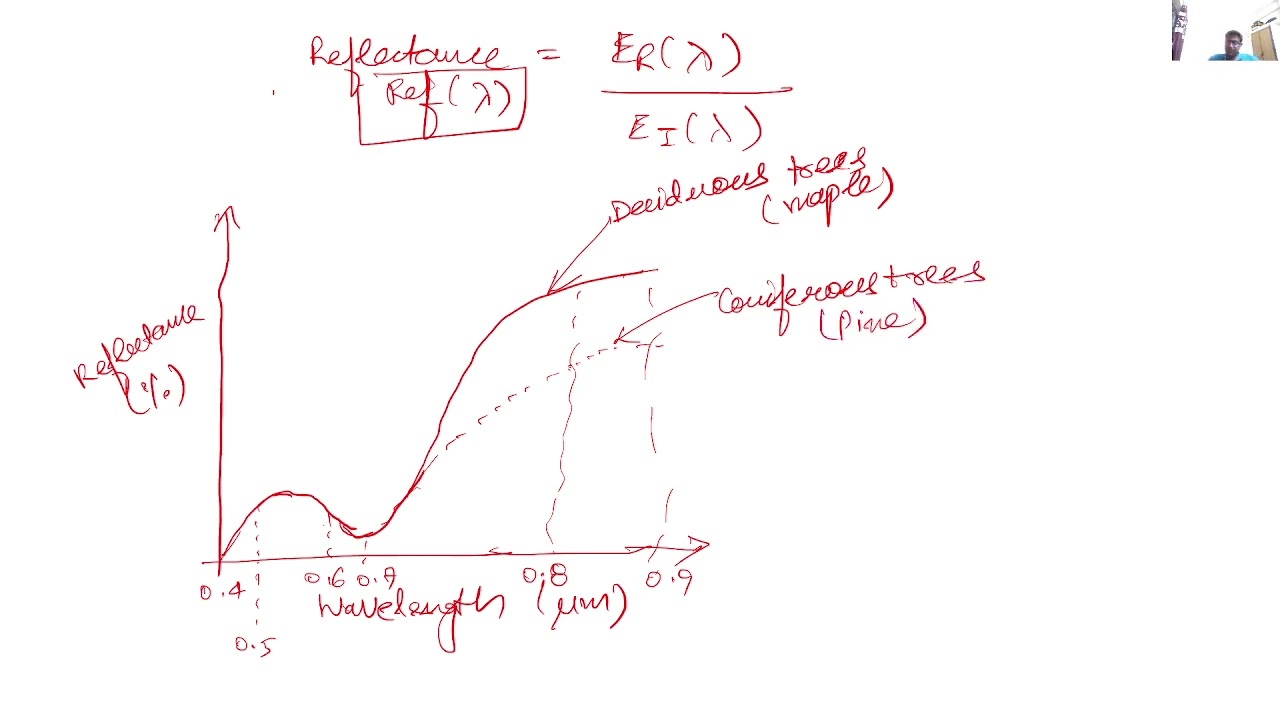 Reflectance = ER(λ)
Ref(λ) EI(λ)
Deciduous trees
(maple)
Coniferous trees
(pine)
Reflectance
(%)
0.4 0.6 0.7 0.8 0.9
Wavelength (μm)
0.5